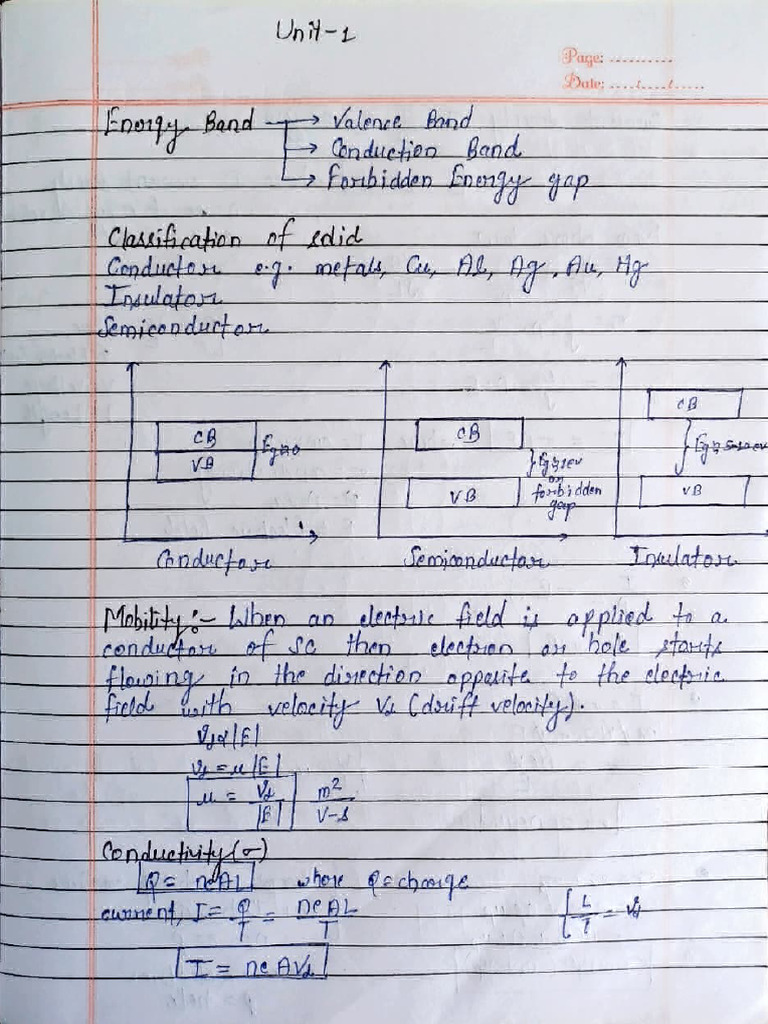 Unit-1
Page: ..........
Date: ..../..../.....
Energy Band → Valence Band
→ Conduction Band
→ Forbidden Energy gap
Classification of solid
Conductor e.g. metals, Cu, Al, Ag, Au, Hg
Insulator
Semiconductor
CB
VB
Eg≈0
CB
VB
Eg≈1ev
or
forbidden
gap
CB
VB
Conductor
Semiconductor
Insulator
Mobility:- When an electric field is applied to a
conductor of SC then electron or hole starts
flowing in the direction opposite to the electric
field with velocity Vd (drift velocity).
Vd α |E|
Vd = μ|E|
μ = Vd/|E| m²/V-s
Conductivity (σ)
Q = neAL where Q = charge
current, I = Q/T = neAL/T [L/T = Vd
I = neAVd